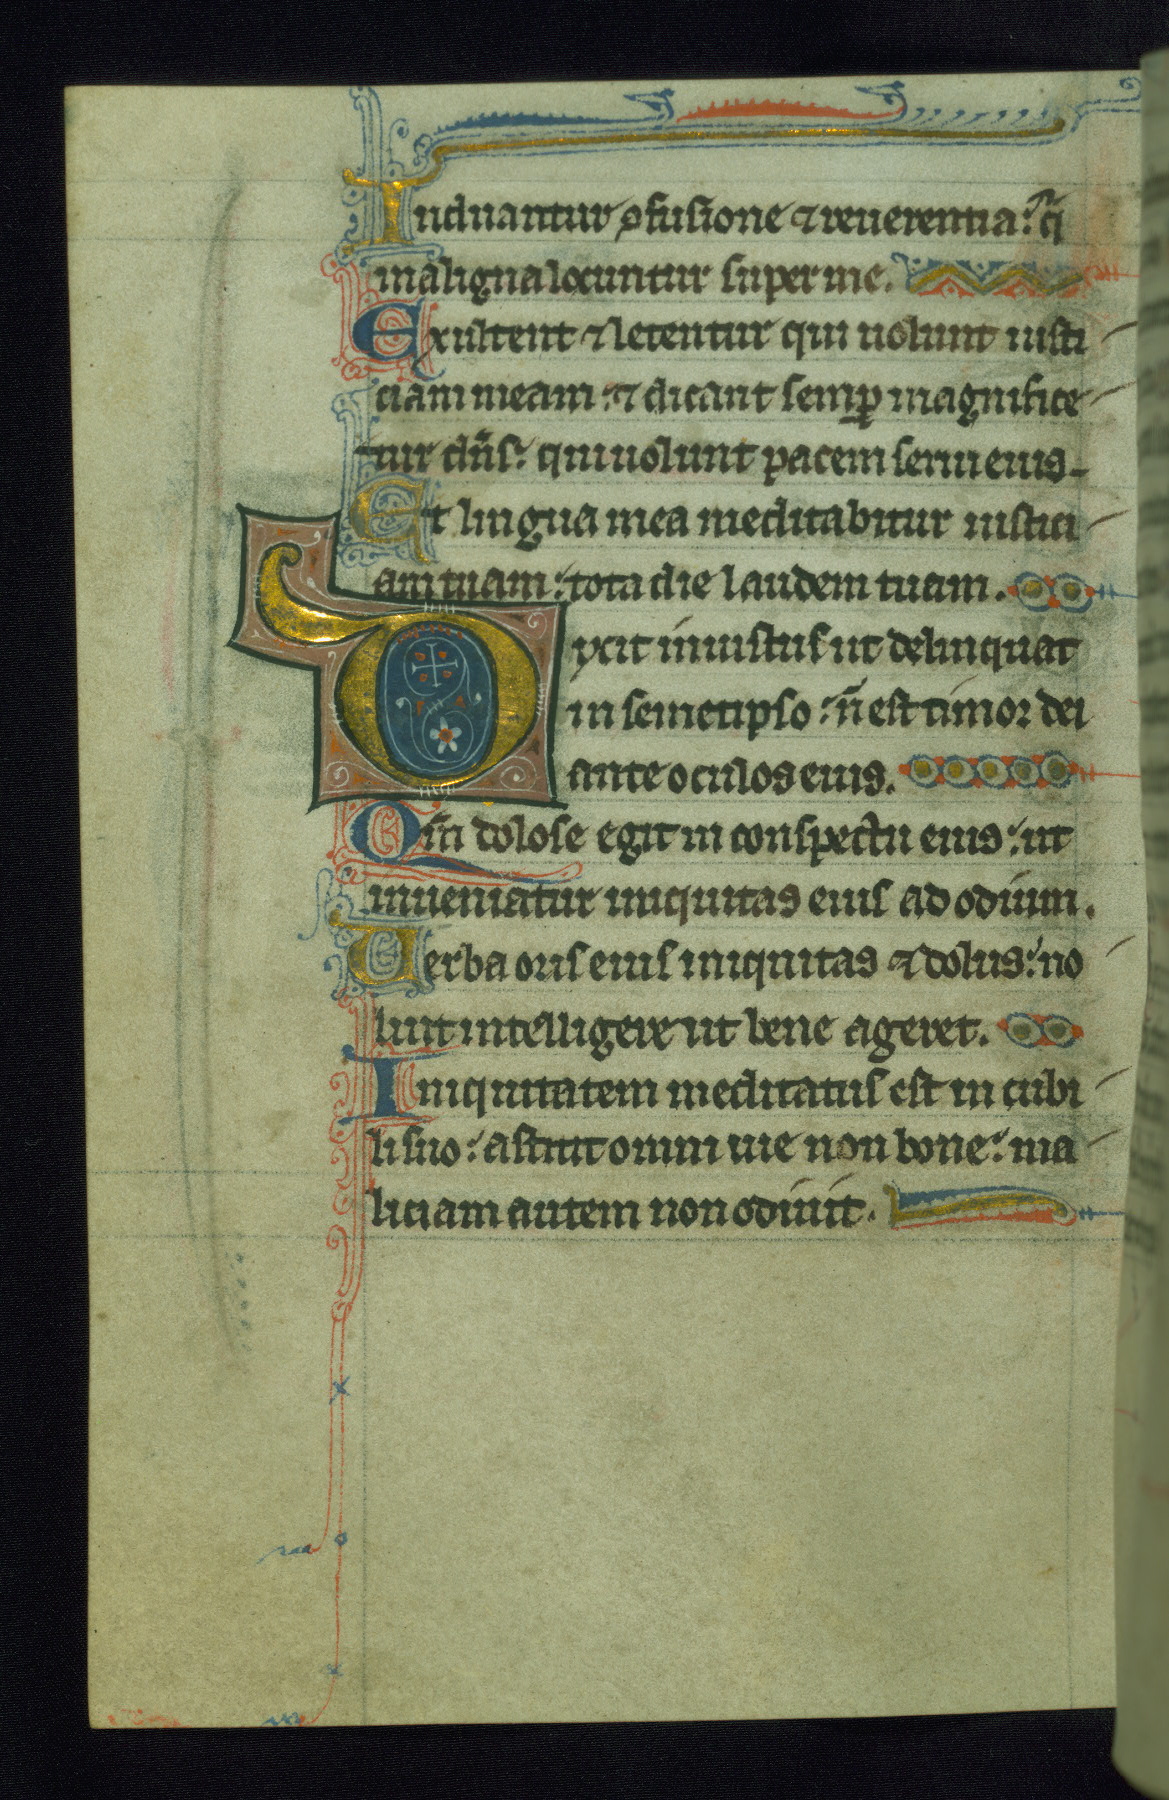 Induantur ꝯfusione ⁊ reuerentia: q̄
maligna locuntur super me.
Exultent ⁊ letentur qui uolunt iusti
ciam meam: ⁊ dicant semꝑ magnifice
tur dn̄s: qui uolunt pacem serui eius
Et lingua mea meditabitur iustici
am tuam: tota die laudem tuam.
Dixit iniustus ut delinquat
in semetipso: n̄ est timor dei
ante oculos eius.
Qm̄ dolose egit in conspectu eius: ut
inueniatur iniquitas eius ad odium.
Uerba oris eius iniquitas ⁊ dolus: no
luit intelligere ut bene ageret.
Iniquitatem meditatus est in cubi
li suo: astitit omni uie non bone: ma
liciam autem non odiuit.